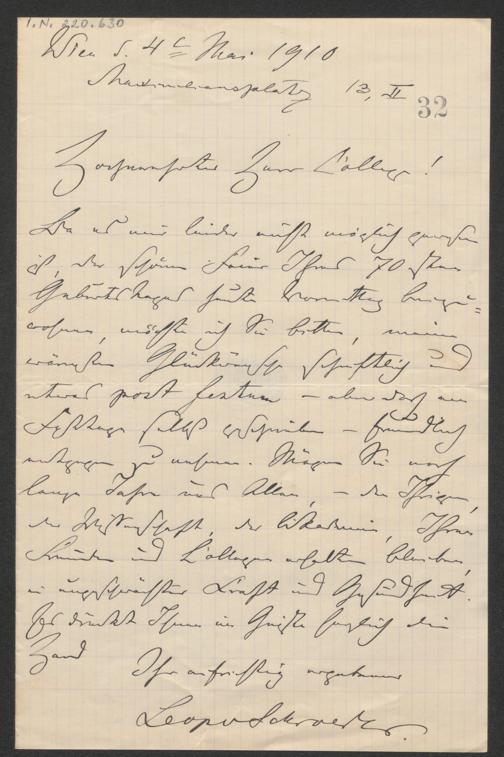 I.N. 220.630
Wien d. 4t Mai 1910
Maximiliansplatz 13, II
32
Hochverehrter Herr College!
Da es mir leider nicht möglich gewesen
ist, der schönen Feier Ihres 70sten
Geburtstages heute Vormittag beizu=
wohnen, möchte ich Sie bitten, meine
wärmsten Glückwünsche schriftlich und
etwas post festum – aber doch am
Festtage selbst geschrieben – freundlich
entgegen zu nehmen. Mögen Sie noch
lange Jahre uns Allen, – den Ihrigen,
der Wissenschaft, der Akademie, Ihren
Freunden und Collegen erhalten bleiben,
in ungeschwächter Kraft und Gesundheit.
Es drückt Ihnen im Geiste herzlich die
Hand
Ihr aufrichtig ergebener
Leop v Schroeder.